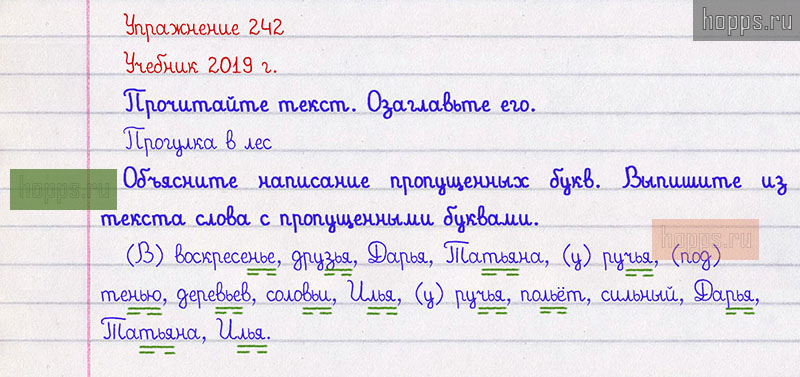 hopps.ru
Упражнение 242
Учебник 2019 г.
Прочитайте текст. Озаглавьте его.
Прогулка в лес
hopps.ru
Объясните написание пропущенных букв. Выпишите из
текста слова с пропущенными буквами.
hopps.ru
(В) воскресенье, друзья, Дарья, Татьяна, (у) ручья, (под)
тенью, деревьев, соловьи, Илья, (у) ручья, польёт, сильный, Дарья,
Татьяна, Илья.